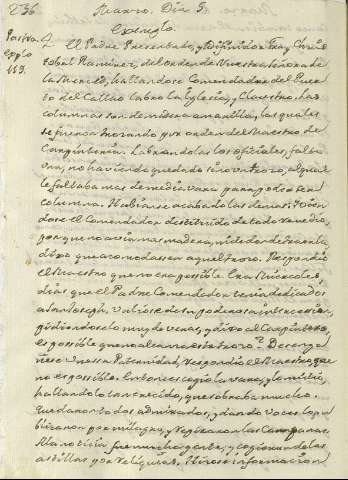 236 Marzo. Dia 5.
Exemplo.
El Padre Presentado, y Difinidor Fray Chris
tobal Ramirez, del orden de Nuestra Señora de
la Merced, hallandose Comendador del Puer
to del Callao labro la Iglesia, y Claustro. las
columnas son de madera amarilla, las quales
se fueron por orden del Maestro de
Carpinteria. Labrandolas los oficiales, falto
una, no haviendo quedado sino un trozo, al qual
le faltaba mas de media vara para poder ser
columna. Habianse acabado las demas. Vien
dose el Comendador destituido de todo remedio,
porque no avia mas madera, ni de donde traerla,
dixo que acomodasen aquel trozo. Respondio
el Maestro que no era posible. Era Miercoles,
dias que el Padre Comendador tenia dedicados
a San Joseph. Valiose de su poderosa intercesion,
pidiendoselo muy de veras, y dixo al Carpintero,
es posible que no alcanza este trozo?
Vuessa Paternidad, respondio el Maestro, que
no es posible. Entonces cogio la vara, y lo midio,
hallandolo tan crecido, que sobraba mucho.
Quedaron todos admirados, y dando voces lo pu
blicaron por milagro, y repicaron las Campanas.
A la noticia fue mucha gente, y cogieron de las
astillas por reliquias. Hizose informacion